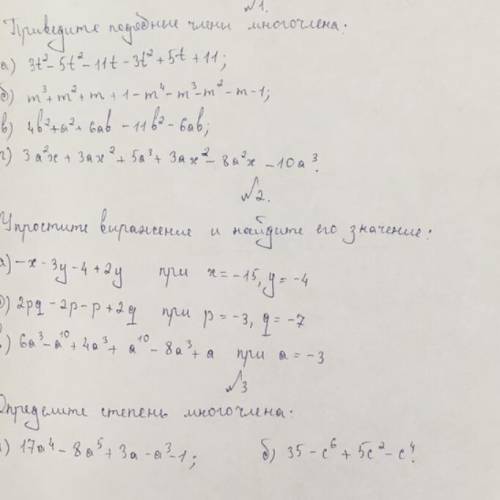 №1.
Приведите подобные члены многочлена:
а) 3t² - 5t² - 11t - 3t² + 5t + 11;
б) m³ + m² + m + 1 - m⁴ - m³ - m² - m - 1;
в) 4b² + a² + 6ab - 11b² - 6ab;
г) 3a²x + 3ax² + 5a³ + 3ax² - 8a²x - 10a³.
№2.
Упростите выражение и найдите его значение:
а) -x - 3y - 4 + 2y при x = -15, y = -4
б) 2pq - 2p - p + 2q при p = -3, q = -7
в) 6a³ - a¹⁰ + 4a³ + a¹⁰ - 8a³ + a при a = -3
№3
Определите степень многочлена:
а) 17a⁴ - 8a⁵ + 3a - a³ - 1; б) 35 - c⁶ + 5c² - c⁴.